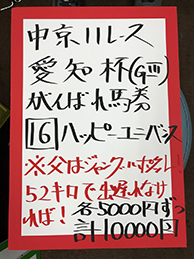 中京11レース
愛知杯(GⅢ)
がんばれ馬券
16 ハッピーユニバンス
※父はジャングルポケット!
52キロで出遅れなけ
れば! 各5000円ずつ
計10000円